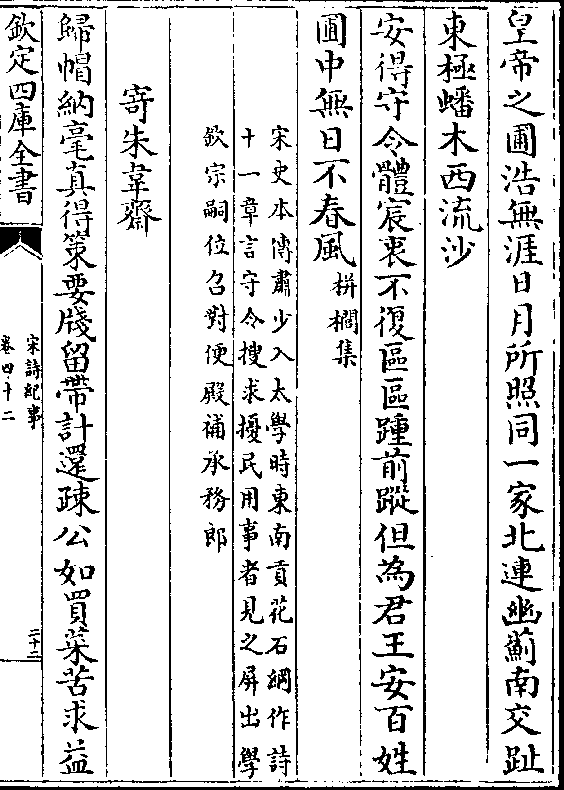 皇帝之圃浩無涯日月所照同一家北連幽薊南交趾
東極蟠木西流沙
安得守令體宸衷不復區區踵前蹤但為君王安百姓
圃中無日不春風
栟櫚集
宋史本傳肅少入太學時東南貢花石綱作詩
十一章言守令搜求擾民用事者見之屏出學
欽宗嗣位召對便殿補承務郎
寄朱韋齋
歸帽納毫真得策要牋留帶計還疎公如買菜苦求益
欽定四庫全書
宋詩紀事
卷四十二
二十二